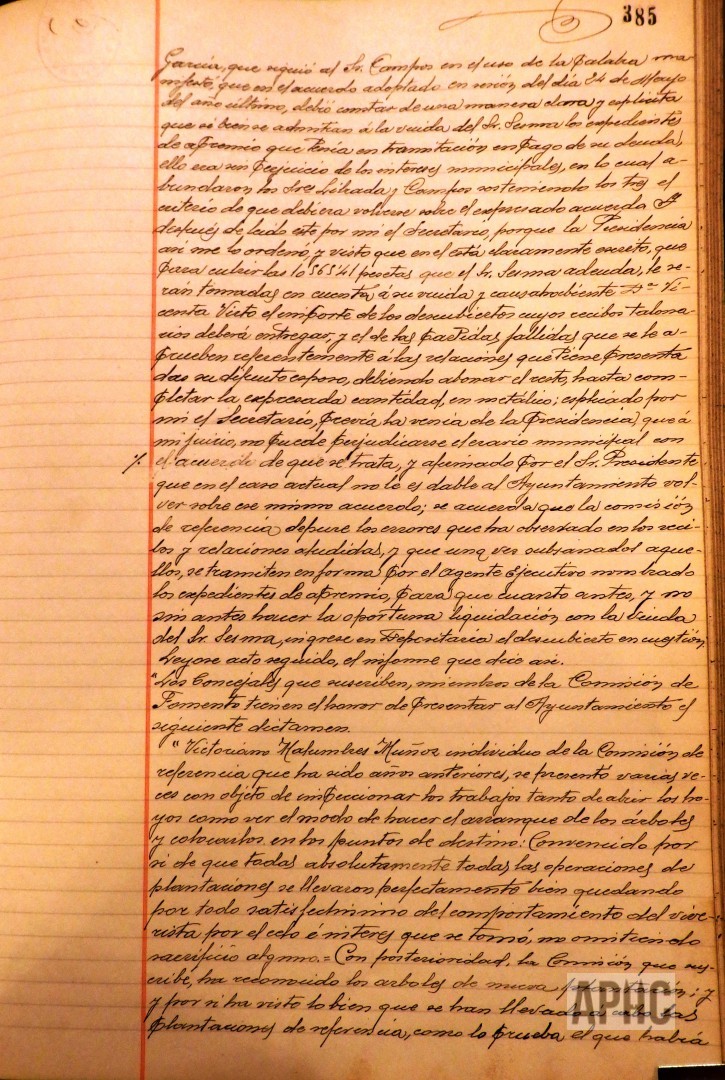 385
García, que siguió al Sr. Campos en el uso de la palabra ma-
nifestó, que en el acuerdo adoptado en sesión del día 24 de Mayo
del año último, debió constar de una manera clara y esplicita
que si bien se admitian á la viuda del Sr. Sesma los expedientes
de apremio que tenía en tramitación en pago de su deuda,
ello era sin perjuicio de los intereses municipales, en lo cual a-
bundaron los Sres Librada y Campos sosteniendo los tres el
criterio de que debiera volverse sobre el expresado acuerdo. Y
después de leido este por mi el Secretario, porque la Presidencia
asi me lo ordenó, y visto que en él está claramente escrito, que
para cubrir las 10565'41 pesetas que el Sr. Sesma adeuda, le se-
rán tomadas en cuenta á su viuda y causahabiente Dª Vi-
centa Visto el importe de los descubiertos cuyos recibos talona-
rios deberá entregar, y el de las partidas fallidas que se le a-
prueben referentemente á las relaciones que tiene presenta
das su difunto esposo, debiendo abonar el resto, hasta com-
pletar la expresada cantidad, en metálico; esplicado por
mi el Secretario, (previa la venia de la Presidencia) que á
mi juicio, no puede perjudicarse el erario municipal con
el acuerdo de que se trata, y afirmado por el Sr. Presidente
que en el caso actual no le es dable al Ayuntamiento vol-
ver sobre ese mismo acuerdo; se acuerda que la comisión
de referencia depure los errores que ha observado en los reci-
bos y relaciones aludidas, y que una vez subsanados aque-
llos, se tramiten en forma por el agente ejecutivo nombrado
los expedientes de apremio, para que cuanto antes, y no
sin antes hacer la oportuna liquidación con la viuda
del Sr. Sesma, ingrese en Depositaria el descubierto en cuestión.
Leyose acto seguido, el informe que dice asi.
"Los Concejales que suscriben, miembros de la Comisión de
Fomento tienen el honor de presentar al Ayuntamiento el
siguiente dictamen.
" Victoriano Masumbres Muñoz individuo de la Comisión de
referencia que ha sido años anteriores, se presentó varias ve-
ces con objeto de inspeccionar los trabajos tanto de abrir los ho-
yos como ver el modo de hacer el arranque de los árboles
y colocarlos en los puntos de destino: Convencido por
si de que todas absolutamente todas las operaciones de
plantaciones se llevaron perfectamente bien quedando
por todo satisfechisimo del comportamiento del vive-
rista por el celo é interes que se tomó, no omitiendo
sacrificio alguno.= Con posterioridad, la Comisión que sus-
cribe, ha reconocido los arboles de nueva plantación; y
y por si ha visto lo bien que se han llevado a cabo las
plantaciones de referencia, como lo prueba el que había
APHC